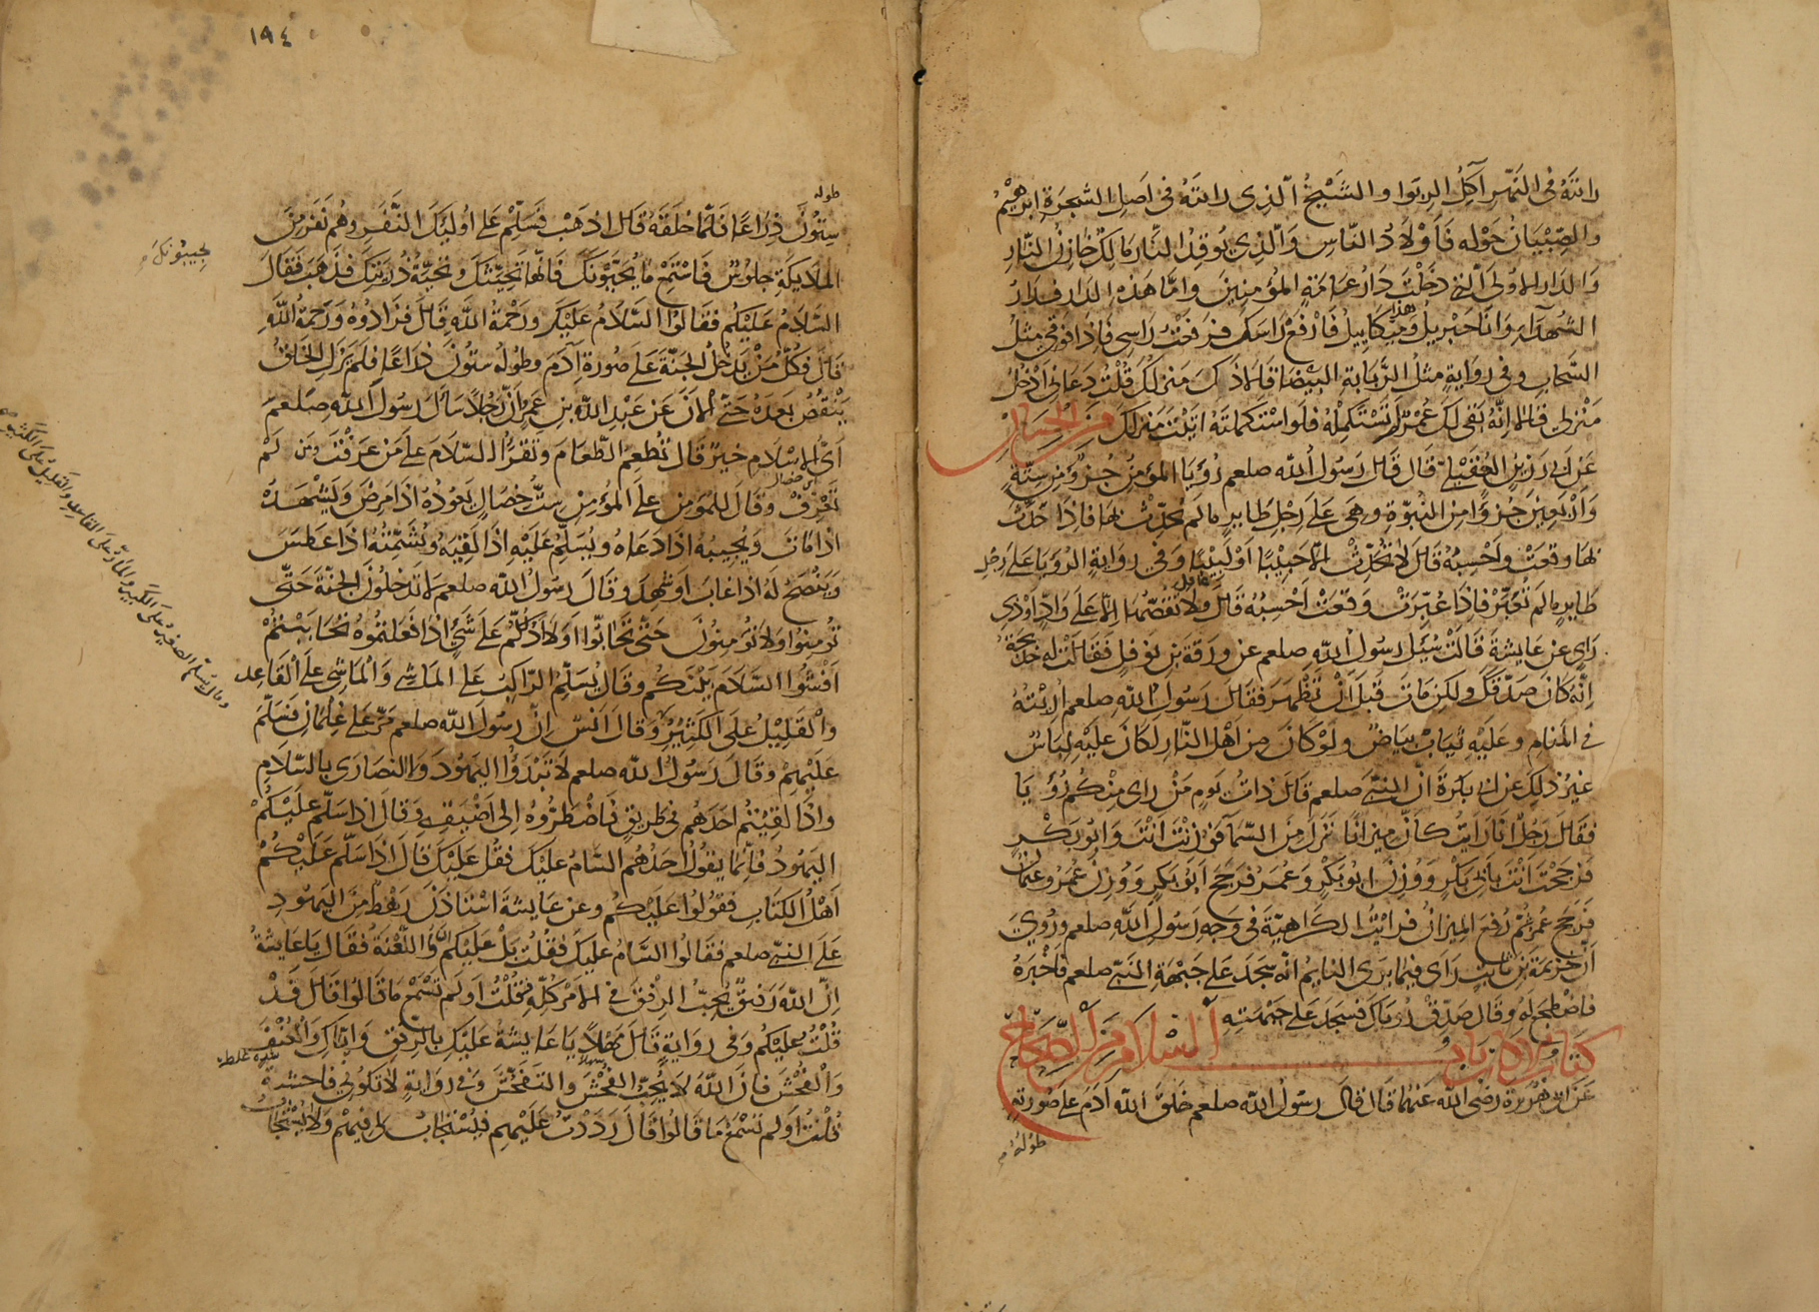 راىتَهُ فى النّهَر آكِلُ الرِبَوا والشَيْخُ الّذِى راىتَهُ فى اَصلِ الشجرَةِ ابرهيمُ
والصِّبْيَانُ حَوْله فَاَوْلادُ النّاسِ وَالّذِى يُوقِدُ النَّارَ مَالِكٌ خَازِنُ النَّارِ
وَالدَارُ الاُولَى الّتى دَخَلْتَ دَارُ عَامّةِ المُؤمِنِينَ وامّا هَذِهِ الدار فدارُ
الشُهدآءِ وَانَا جبْرِيلُ وَهذا مِيكَايِيلُ فَارْفَعْ رَاسَكَ فرفَعْتُ رَاسِى فَاِذَا فوقى مِثلُ
السَّحَابِ وفى رِوَايَةٍ مثلُ الرّبَابَةِ البَيْضَا قالا ذَاكَ مَنزلكَ قُلتُ دَعَانى اَدْخلُ
مَنْزِلى قالا اِنَّهُ بَقى لَكَ عُمْرٌ لم تَسْتَكمِلْهُ فلَو استَكملتَهُ اتَيْتَ مَنزلكَ من الحِسَان
عَن اَبى رَزِينٍ العُقَيْلى قال قال رَسُولُ الله صلعم رُؤيَا المؤمِنُ جُزءٌ مِن ستّةٍ
وَاَرْبَعِينَ جُزءًا مِن النُبوّةِ وهى عَلَى رِجْلِ طَايرٍ مالم يُحدِّث بها فاِذَا حَدَّثَ
بها وقعَتْ واَحْسِبُهُ قال لا تُحَدِّثْ الّا حَبِيْبًا اَوْ لَبِيْبًا وَفى رِوَايَةٍ الرُؤيَا عَلَى رِجْلِ
طَايرٍ مالم تُعَبَّرْ فاِذَا عُبِّرَتْ وَقعَتْ اَحْسِبُهُ قال ولا تَقُصّهَا اِلّا عَلَى وَادٍّ اوذِى
رَاىٍ عن عَايشةَ قَالتْ سُيلَ رسولُ اللهِ صلعم عن ورَقةَ بن نوفلٍ فقالتْ له خديجَةُ
اِنّهُ كانَ صَدّقكَ ولكِن مَاتَ قَبلَ اَنْ تَظْهرَ فقال رَسُولُ اللهِ صلعم اُرِيْتُهُ
فى المنامِ وعَلَيهِ ثيابٌ بيَاضٌ ولَوْ كانَ مِن اَهْلِ النّارِ لكانَ عَليْهِ لِبَاسٌ
غيرُ ذلِكَ عن اَبى بَكْرَةَ انّ النَبىّ صلعم قال ذاتَ يَوم مَنْ راى مِنْكم رُؤيَا
فقال رَجُلٌ انَا رَاَيتُ كانّ ميزانًا نَزلَ مِنَ السّمآء فَوُزِنْتَ اَنْتَ وَابُو بَكرٍ
فَرجَحْتَ اَنْتَ بابِى بَكْرٍ وَوُزِنَ ابُو بَكْرٍ وعُمَرُ فرَجَحَ اَبُو بَكرٍ وَوُزِنَ عُمَرُ وعثمانُ
فَرَجَحَ عُمرُ ثمَّ رُفعَ المِيزانُ فرايْتُ الكَرَاهِيَةَ فى وَجهِ رَسُولِ اللهِ صلعم ورُوِىَ
اَنّ خزيمَةَ بن ثابتٍ رَاى فيمَا يَرَى النايمُ انّه سَجَدَ عَلى جَبْهَةِ النَّبىّ صلعم فاَخْبرَهُ
فاضْطجعَ لهُ وقال صَدِّقْ رُوياكَ فسَجَدَ عَلى جَبْهَتِهِ
كتاب الاداب باب السلام من الصحاح
عَن ابى هُرَيرَةَ رضَى الله عَنهُ قال قال رسُولُ الله صلعم خلَقَ الله ادَمَ عَلى صُورَتِهِ
طُولُهُ
١٩٤
طوله
سِتُّونَ ذِرَاعًا فَلَمَّا خلقَهُ قال اذهَبْ فَسَلِّمْ عَلى اُوليكَ النّفَرِ وهُم نَفرٌ مِنَ
الملايكَةِ جلُوسٌ فَاسْتمِعْ ما يُحَيّونَكَ فَانّها تَحِيّتُكَ وتحيّةُ ذُرّيَتِكَ فذهَبَ فقال
يجيبونكَ
السَلامُ عَلَيْكُم فقالوا السَّلامُ عَلَيْكَ ورَحْمَةُ اللهِ قال فَزَادُوهُ وَرَحْمَةُ اللهِ
قال فكُلُّ مَنْ يدخُلُ الجنّةَ عَلى صُورَةِ ادَمَ وطُولُه سِتُونَ ذِرَاعًا فلم يَزلِ الخَلقُ
يَنْقُصُ بَعدَهُ حَتّى الانَ عَن عَبْدِ اللهِ بنِ عَمرٍو انّ رَجُلاً سَالَ رسُولَ اللهِ صلعم
اَىُّ الاِسْلامِ خيرٌ قال تُطعِمُ الطّعَامَ وتَقرَأُ السّلامَ عَلى مَنْ عَرَفْتَ ومَن لَمْ
تَعْرِفْ وقال لِلمُؤمِنِ علَى المُؤمِنِ سِتُّ خِصَالٍ يَعُودُهُ اذَا مَرِضَ وَيَشْهَدُهُ
اذَا مَاتَ وَيُجِيبُهُ اذَا دَعَاهُ ويُسَلِّمُ عَلَيْهِ اذَا لَقِيَهُ ويُشَمِّتُهُ اذَا عَطَسَ
وَيَنْصَحُ لَهُ اذَا غابَ اَو شهِدَ وقال رَسولُ الله صلعم لا تَدخلُونَ الجنّةَ حَتّى
تُؤمِنُوا ولا تُؤمِنونَ حَتّى تحابّوا اَوَلا اَدُلّكُم عَلى شَىءٍ اذَا فَعَلتمُوهُ تحَابَبْتُمْ
اَفْشُوا السَّلامَ بَيْنكُم وقال يُسَلِّمُ الرّاكِبُ عَلى الماشى وَالماشِى عَلَى القاعِدِ
والْقَلِيلُ علَى الكَثِيْرِ وقال اَنَسٌ انّ رسُولَ الله صلعم مَرّ عَلَى غِلمانٍ فَسَلّمَ
وقال يُسلِّم الصغيرُ علَى الكَبيرِ والمارُّ علَى القاعِدِ والقليلُ علَى الكَثيرِ
عَلَيْهِمْ وقال رَسُولُ الله صلعم لا تَبْدَؤُا اليَهُودَ وَالنّصَارَى بالسّلامِ
واذَا لقِيْتُم اَحَدَهُم فى طريقٍ فَاضْطرُّوهُ اِلى اَضْيَقِهِ وقال اذَا سَلّمَ عَلَيْكُمْ
اليَهُودُ فاِنّمَا يقُولُ اَحَدُهُم السّامُ عليكَ فقُل عَلَيْكَ قال اذَا سَلّم عَلَيْكُمْ
اَهْلُ الكتابِ فقولُوا عَلَيْكُم وعن عَايشةَ استاذَنَ رَهْطٌ مِنَ اليَهُودِ
عَلَى النَّبىّ صلعم فقالوا السَّامُ عليكَ فقلتُ بَلْ عَلَيْكُم وَاللّعْنَةُ فقال يا عَايشةُ
اِنّ اللهَ رَفيقٌ يُحِبُّ الرِفقَ فى الامْرِ كلّهِ فقُلْتُ اَوَلم تَسْمَعْ ما قالوا قال قَدْ
قُلتُ عليْكُم وَفى رِوَايةٍ قال مَهْلاً يا عَايشةُ عَلَيْكِ بالرِفقِ وَايّاكِ وَالْعُنْفَ
وَالْفُحْشَ فانّ اللهَ لا يُحِبُّ الفُحْشَ والتَفَحُّشَ وَفى رِوَايةٍ لا تكونى فاحِشَةً
قُلتُ اَوَلم تَسْمَعْ مَا قالوا قال رَدَدْتُ عَلَيْهِم فيُسْتَجَابُ لى فيهِمْ وَلا يُسْتَجَابُ